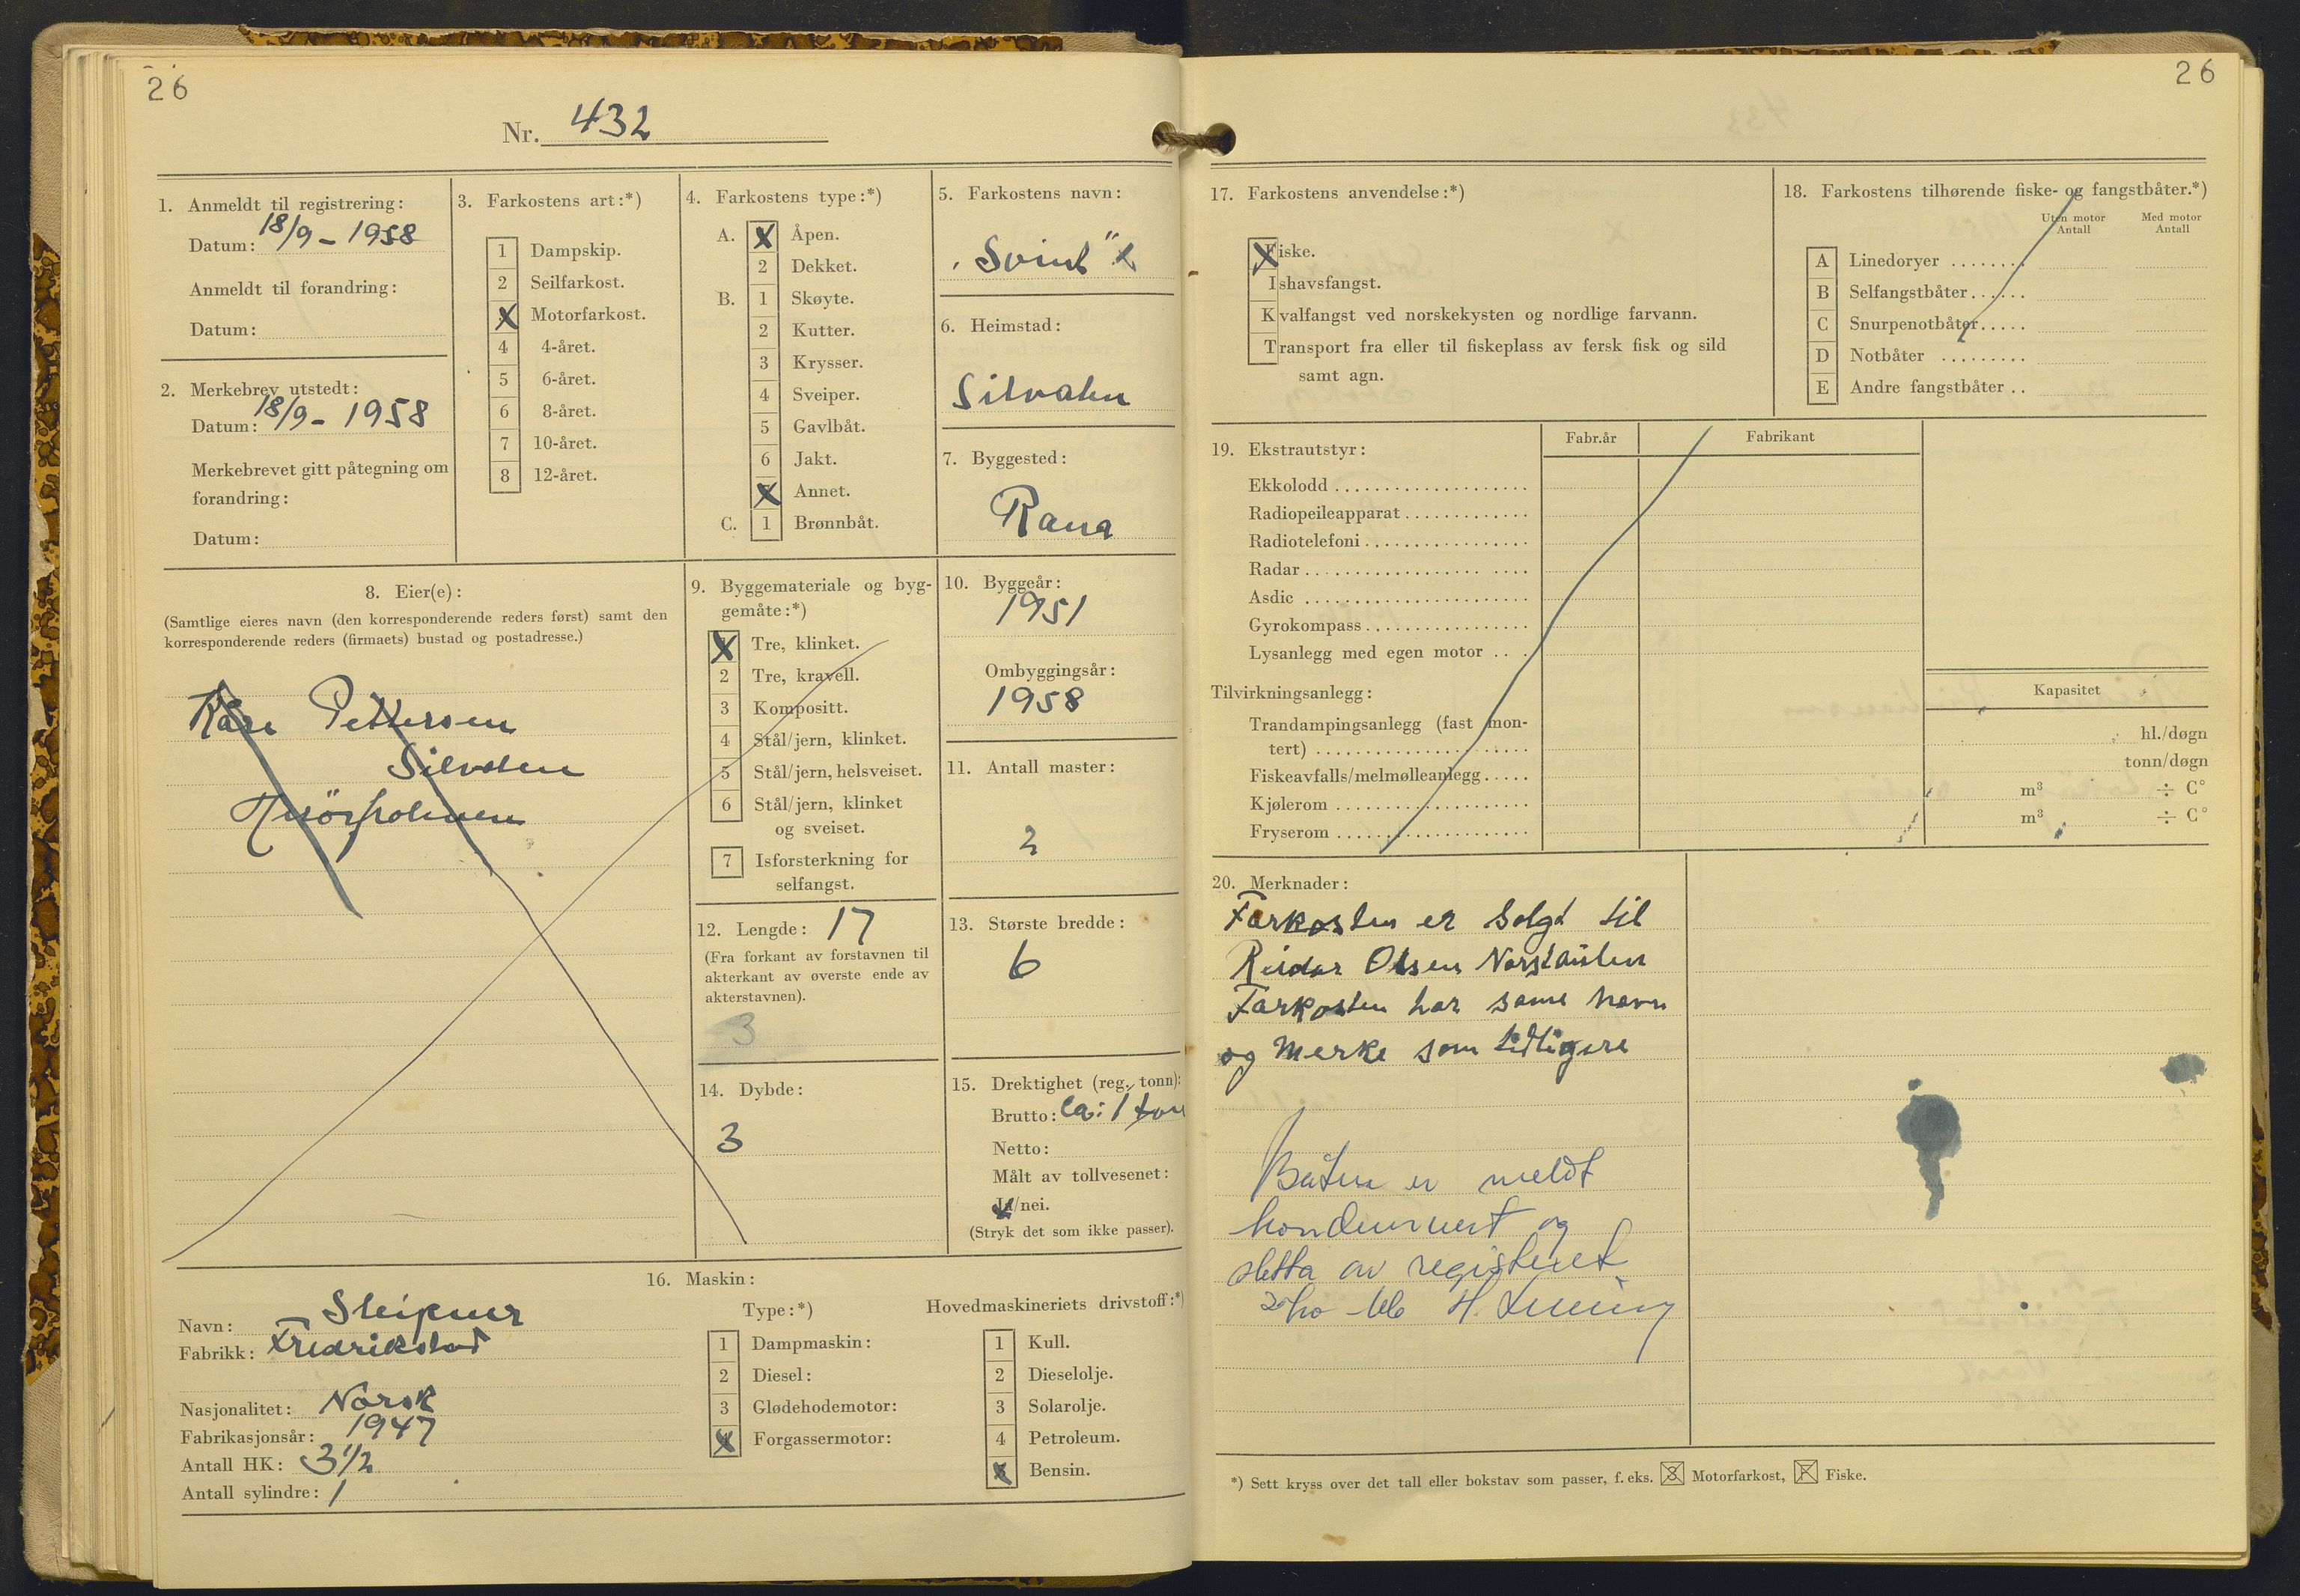 26
Nr. 432
1. Anmeldt til registrering:
Datum: 18/9 - 1958
Anmeldt til forandring:
Datum:
2. Merkebrev utstedt:
Datum: 18/9 - 1958
Merkebrevet gitt påtegning om
forandring:
Datum:
3. Farkostens art:*)
1 Dampskip.
2 Seilfarkost.
X Motorfarkost.
4 4-året.
5 6-året.
6 8-året.
7 10-året.
8 12-året.
4. Farkostens type:*)
A. X Åpen.
2 Dekket.
B. 1 Skøyte.
2 Kutter.
3 Krysser.
4 Sveiper.
5 Gavlbåt.
6 Jakt.
X Annet.
C. 1 Brønnbåt.
5. Farkostens navn:
6. Heimstad:
Silvalen
7. Byggested:
Rana
8. Eier(e):
(Samtlige eieres navn (den korresponderende reders først) samt den
korresponderende reders (firmaets) bustad og postadresse.)
Kåre Pettersen
Silvalen
Herøyholmen
9. Byggemateriale og byg-
gemåte:*)
X Tre, klinket.
2 Tre, kravell.
3 Kompositt.
4 Stål/jern, klinket.
5 Stål/jern, helsveiset.
6 Stål/jern, klinket
og sveiset.
7 Isforsterkning for
selfangst.
10. Byggeår:
1951
Ombyggingsår:
1958
11. Antall master:
2
12. Lengde: 17
(Fra forkant av forstavnen til
akterkant av øverste ende av
akterstavnen).
3
13. Største bredde:
6
14. Dybde:
3
15. Drektighet (reg. tonn):
Brutto: ca: 1 ton
Netto:
Målt av tollvesenet:
Ja/nei.
(Stryk det som ikke passer).
16. Maskin:
Navn: Sleipner
Fabrikk: Fredrikstad
Nasjonalitet: Norsk
Fabrikasjonsår: 1947
Antall HK: 3 1/2
Antall sylindre: 1
Type:*)
1 Dampmaskin:
2 Diesel:
3 Glødehodemotor:
X Forgassermotor:
Hovedmaskineriets drivstoff:*)
1 Kull.
2 Dieselolje.
3 Solarolje.
4 Petroleum.
X Bensin.
26
17. Farkostens anvendelse:*)
Fiske.
Ishavsfangst.
Kvalfangst ved norskekysten og nordlige farvann.
Transport fra eller til fiskeplass av fersk fisk og sild
samt agn.
18. Farkostens tilhørende fiske- og fangstbåter.*)
Uten motor Med motor
Antall Antall
A Linedoryer ........
B Selfangstbåter......
C Snurpenotbåter.....
D Notbåter .........
E Andre fangstbåter ..
19. Ekstrautstyr:
Fabr.år Fabrikant
Ekkolodd
Radiopeileapparat
Radiotelefoni
Radar
Asdic
Gyrokompass
Lysanlegg med egen motor
Tilvirkningsanlegg:
Kapasitet
Trandampingsanlegg (fast mon-
tert) hl./døgn
Fiskeavfalls/melmølleanlegg tonn/døgn
Kjølerom m³ ÷ C°
Fryserom m³ ÷ C°
20. Merknader:
Farkosten er solgt til
Reidar Olsen
Farkosten har same navn
og merke som tidligere
Båten er meldt
kondemnert og
sletta av registeret
H.
*) Sett kryss over det tall eller bokstav som passer, f. eks. 3 Motorfarkost, F Fiske.